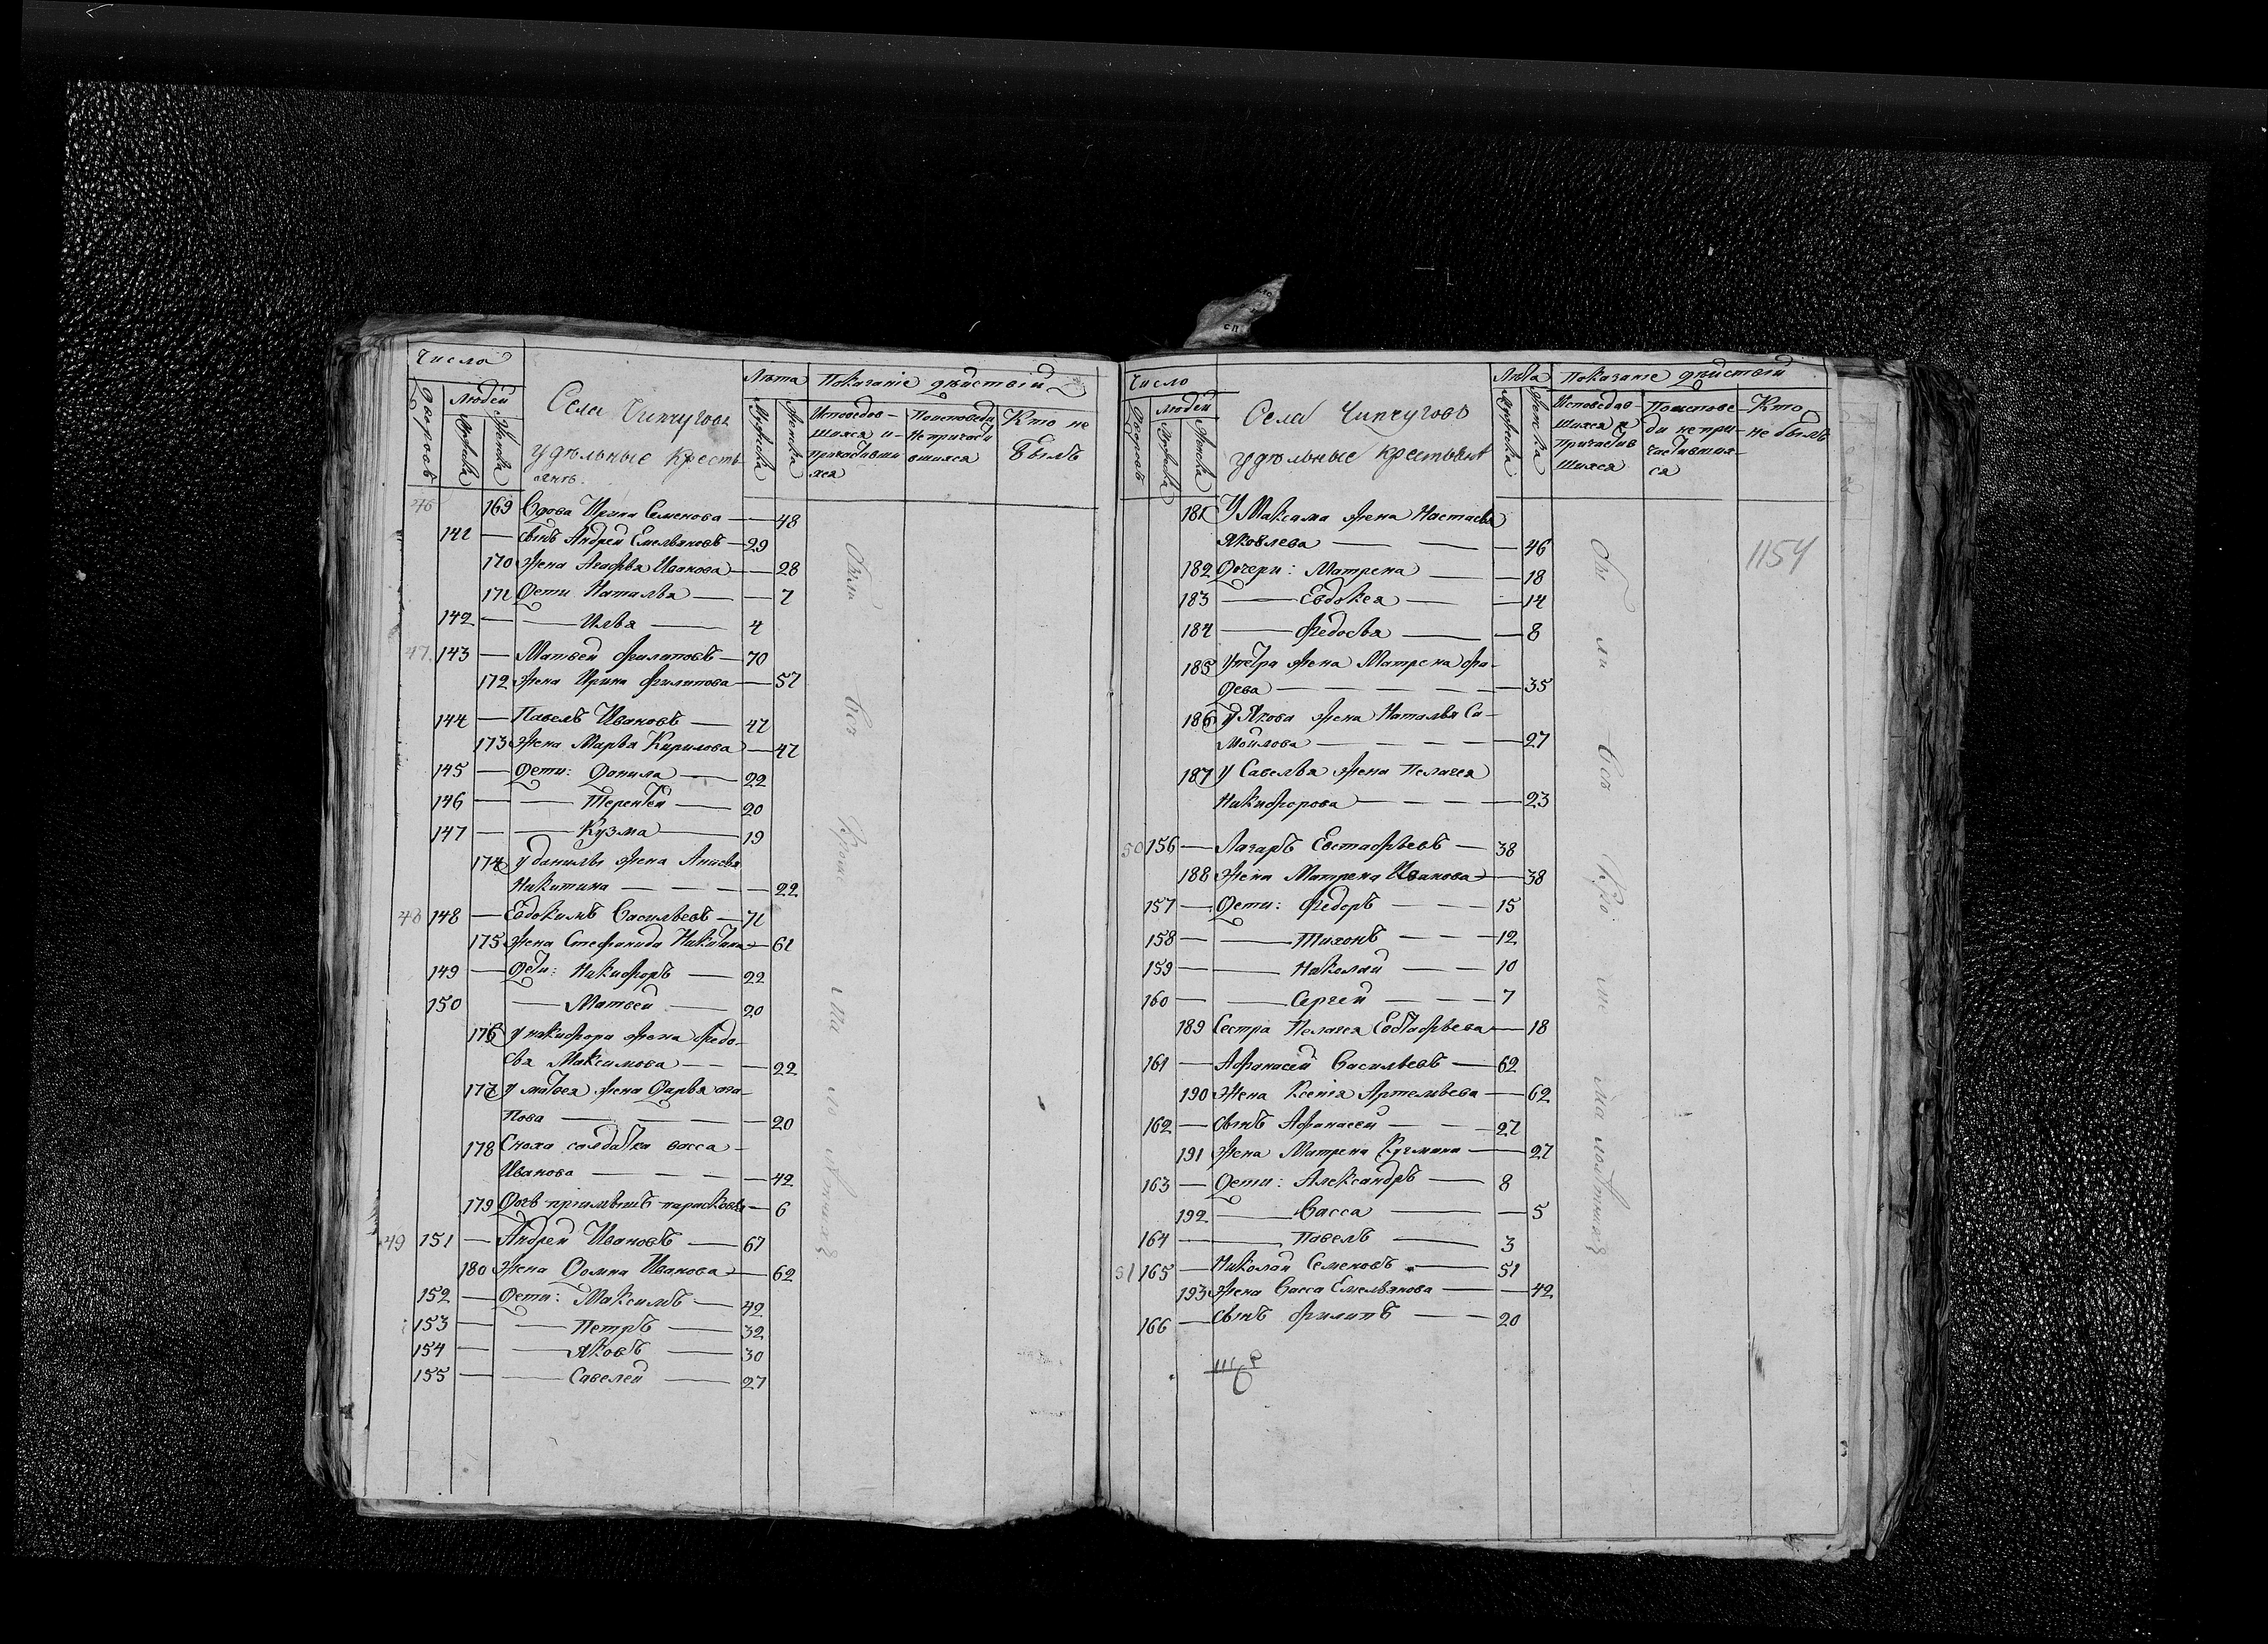 Число
Людей
дворовъ
мужеска
женска
Села Чипчугова
удѣльные кресть
янъ.
Лѣта
мужеска
женска
Показанie дѣйствiй
Исповѣдов-
шихся и
причастивши
хся
Поисповеди
непричасти
вшихся
Кто не
былъ
46 169 Вдова Ирина Семенова — 48
141 — сынъ Андрей Емельяновъ — 29
170 жена Агафья Иванова — 28
171 Дети Наталья — 7
142 — Илья — 4
47. 143 — Матвей Филатовъ — 70
172 жена Ирина Филипова — 57
144 — Павелъ Ивановъ — 47
173 жена Марья Кирилова — 47
145 — Дети: Данила — 22
146 — Терентей — 20
147 — Кузма — 19
174 у данилы жена Анисья
Никитина — 22
48 148 — Евдокимъ Васильевъ — 71
175 жена Стефанида Никитина — 61
149 — Дети: Никифоръ — 22
150 — Матвей — 20
176 у никифора жена Федо-
сья Максимова — 22
177 у матвея жена Дарья ага-
пова — 20
178 Сноха солдатка васса
Иванова — 42
179 Дочь приимышъ парасковья — 6
49 151 — Андрей Ивановъ — 67
180 жена Домна Иванова — 62
152 — Дети: Максимъ — 42
153 — Петръ — 32
154 — Яковъ — 30
155 — Савелей — 27
Были Все Кроме Ма ло летних
Число
Людей
дворовъ
мужеска
женска
Села Чипчугова
удѣльные крестьянъ
Лѣта
мужеска
женска
Показанiе дѣйствiй
Исповедав
шихся и
причастив
шихся
Поисповe
ди непри-
частивших
ся
Кто
не былъ
1154
181 У Максима жена Настасья
Яковлева — 46
182 Дочери: Матрена — 18
183 — Евдокея — 14
184 — Федосья — 8
185 у петра жена Матрена Фа-
деева — 35
186 у Якова жена Наталья Са-
мойлова — 27
187 у Савелья жена Пелагея
Никифорова — 23
50 156 — Лазарь Евстафьевъ — 38
188 жена Матрена Иванова — 38
157 — Дети: Федоръ — 15
158 — Тихонъ — 12
159 — Николай — 10
160 — Сергей — 7
189 Сестра Пелагея Евстафьева — 18
161 — Афанасей Васильевъ — 62
190 жена Ксенiя Артемьева — 62
162 — сынъ Афанасей — 27
191 жена Матрена Кузмина — 27
163 — Дети: Александръ — 8
192 — Васса — 5
164 — Павелъ — 3
51 165 — Николай Семеновъ — 51
193 жена Васса Емельянова — 42
166 — сынъ Филипъ — 20
Бы ли Все Кро ме ма лолетних